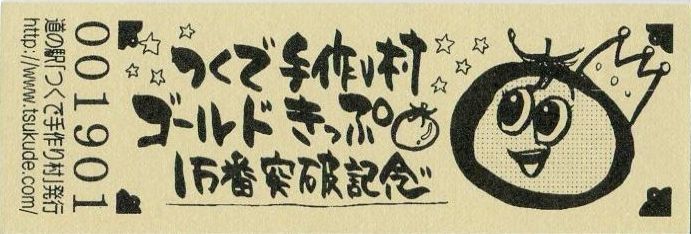 つくで手作り村
ゴールドきっぷ
1万番突破記念
001901
道の駅「つくで手作り村」発行
http://www.tsukude.com/